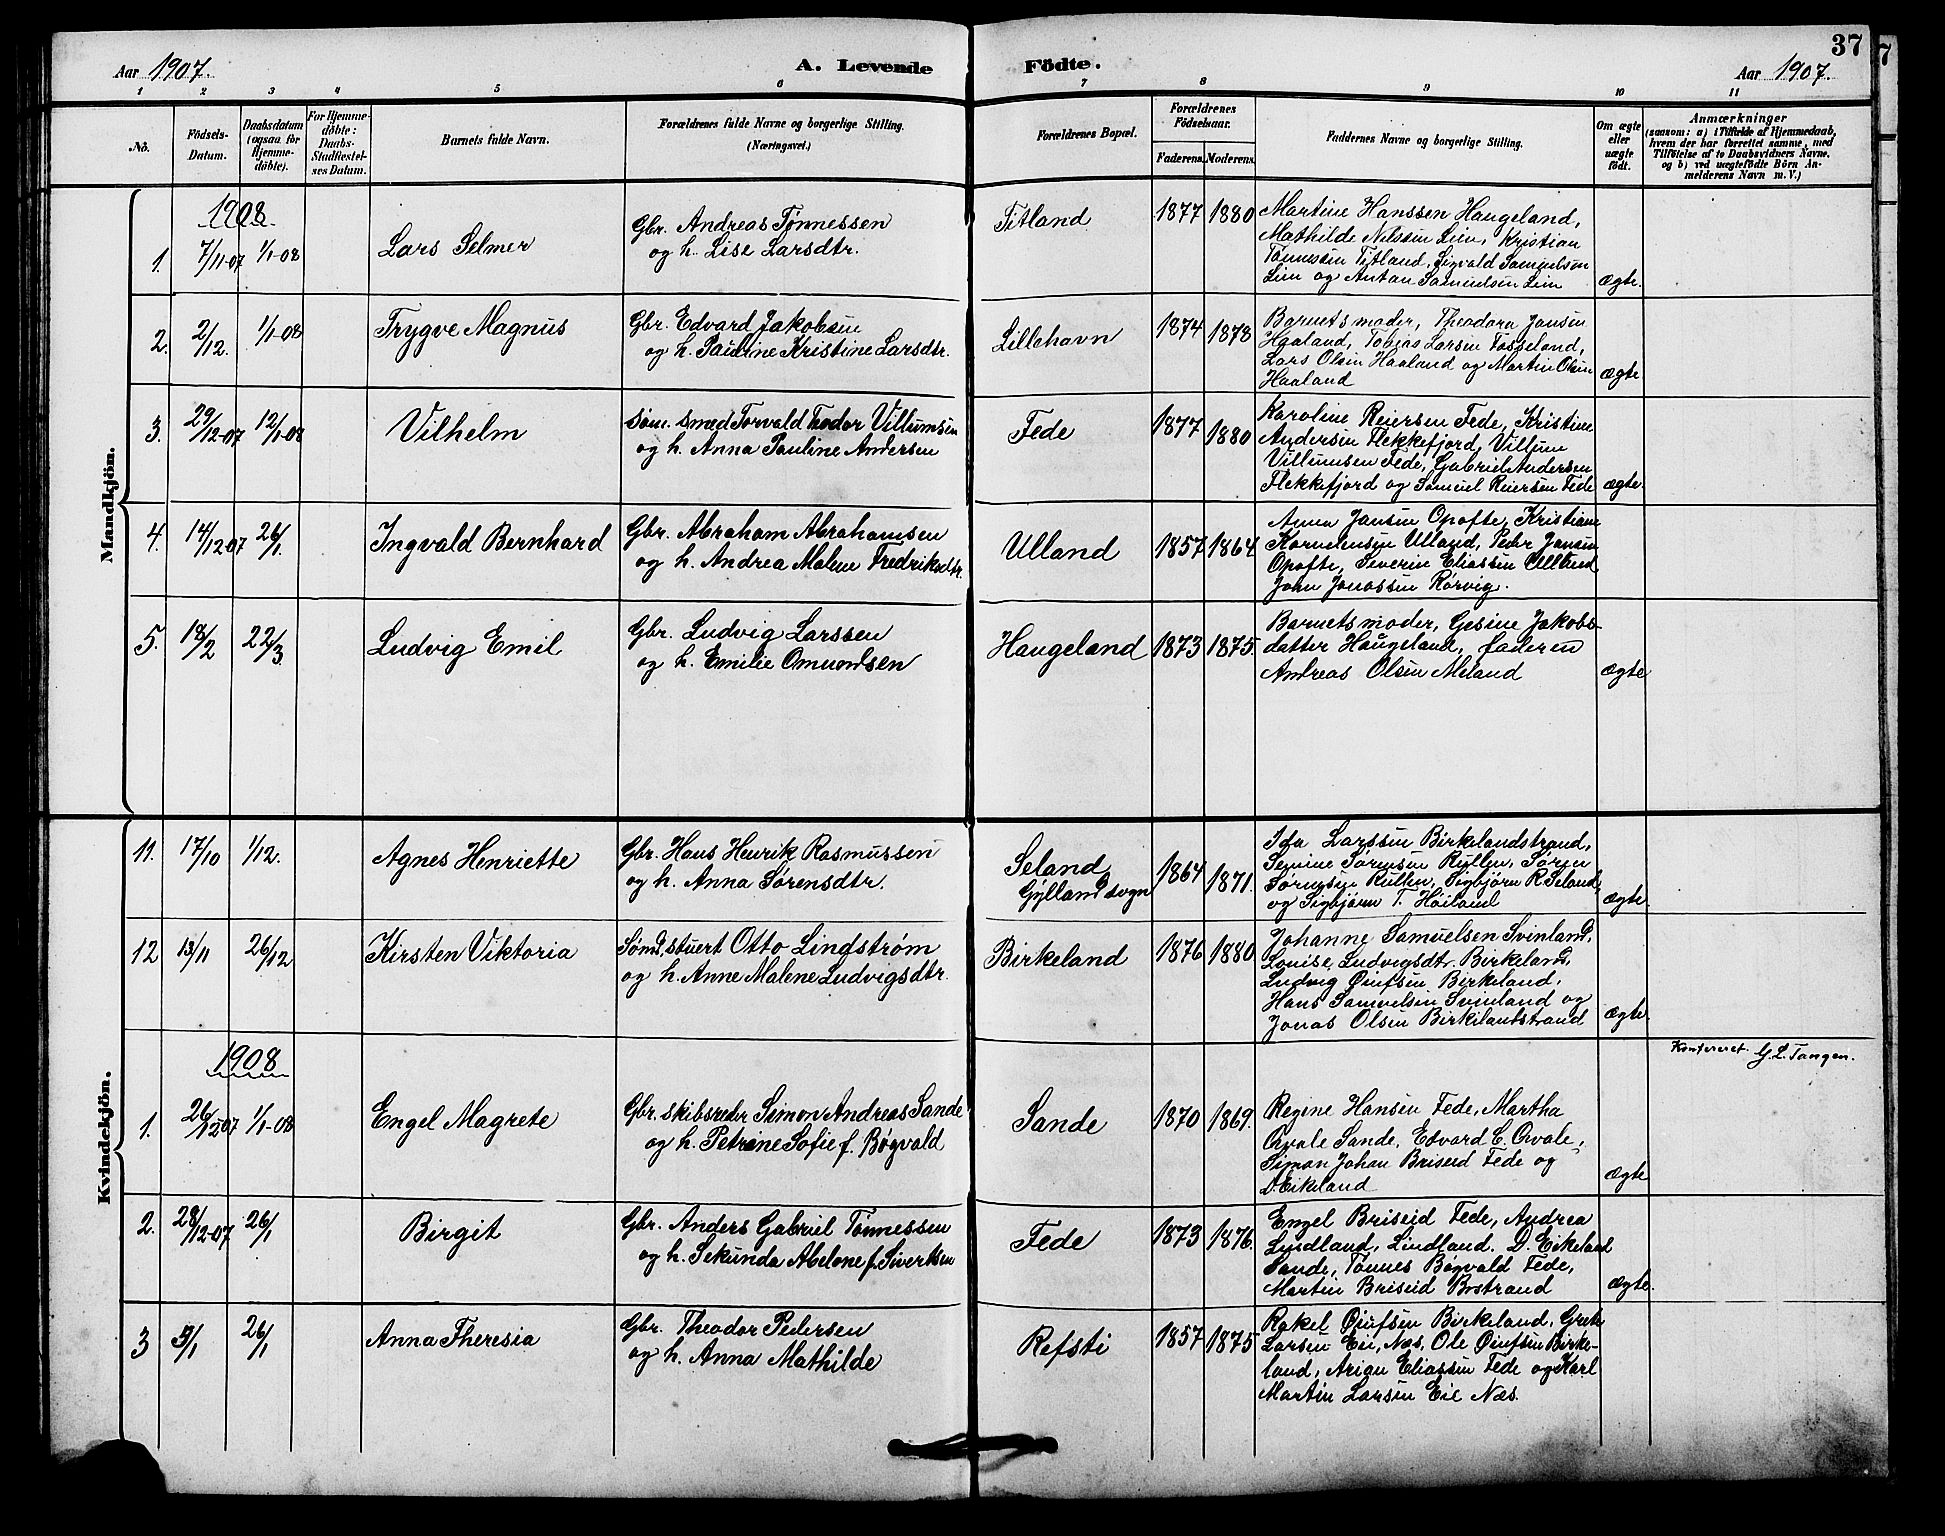 37
Aar 1907.
A. Levende Födte.
Aar 1907.
1 2 3 4 5 6 7 8 9 10 11
No.
Födsels-
Datum.
Daabsdatum
(ogsaa for
Hjemme-
döbte).
For Hjemme-
döbte:
Daabs-
Stadfæstel-
ses Datum.
Barnets fulde Navn.
Forældrenes fulde Navne og borgerlige Stilling.
(Næringsvei.)
Forældrenes Bopæl.
Forældrenes
Födselsaar.
Faderens. Moderens.
Faddernes Navne og borgerlige Stilling.
Om ægte
eller
uægte
födt.
Anmærkninger
(saasom: a) i Tilfælde af Hjemmedaab,
hvem der har forrettet samme, med
Tilföielse af to Daabsvidners Navne,
og b) ved uægtefödte Börn An-
melderens Navn m. V.)
Mandkjön.
1908
1. 7/11-07 1/1-08
Lars Selmer
Gbr. Andreas Tønnessen
og h. Lise Larsdtr.
Titland
1877 1880
Martine Hanssen Haugeland,
Mathilde Nilssen Lien, Kristian
Tønnessen Titland, Sigvald Samuelsen
Lien og Antan Samuelsen Lien
ægte.
2. 2/12. 1/1-08
Trygve Magnus
Gbr. Edvard Jakobsen
og h. Pauline Kristine Larsdtr.
Lillehavn
1874 1878
Barnets moder, Theodora Jansen
Haaland, Tobias Larsen Fosseland,
Lars Olsen Haaland og Martin Olsen
Haaland
ægte
3. 29/12-07 12/1-08
Vilhelm
Søm. smed Torvald Teodor Villumsen
og h. Anna Pauline Andersen
Fede
1877 1880
Karoline Reiersen Fede, Kristine
Andersen Flekkefjord, Villum
Villumsen Fede, Gabriel Andersen
Flekkefjord og Samuel Reiersen Fede
ægte.
4. 14/12-07 26/1.
Ingvald Bernhard
Gbr. Abraham Abrahamsen
og h. Andrea Malene Fredriksdtr.
Ulland
1857 1864
Anna Jansen Opofte, Kristiane
Kornelensen Ulland, Peder Jansen
Opofte, Severin Eliassen Ulland
John Jonassen Rørvig.
5. 18/2 22/3.
Ludvig Emil
Gbr. Ludvig Larssen
og h. Emilie Omundsen
Haugeland
1873 1875.
Barnets moder, Gesine Jakobs-
datter Haugeland, faderen
Andreas Olsen Meland
ægte
Kvindekjön.
11. 17/10 1/12.
Agnes Henriette
Gbr. Hans Henrik Rasmussen
og h. Anna Sørensdtr.
Seland
Gylland sogn
1864 1871.
Ida Larssen Birkelandstrand,
Semine Sørensen Rullen, Søren
Sørensen Rullen, Sigbjørn R. Seland,
og Sigbjørn T. Høiland
ægte.
12 13/11 26/12
Kirsten Viktoria
Sømd, stuert Otto Lindstrøm
og h. Anne Malene Ludvigsdtr.
Birkeland
1876 1880
Johanne Samuelsen Svinland,
Louise Ludvigsdtr. Birkeland,
Ludvig Øiufsen Birkeland,
Hans Samuelsen Svinland og
Jonas Olsen Birkelandstrand
ægte.
Konfereret G. L. Tangen.
1908
1. 26/12-07 1/1-08
Engel Magrete
Gbr. skibsreder Simon Andreas Sande
og h. Petrine Sofie f. Bøgvald
Sande
1870 1869.
Regine Hansen Fede, Martha
Ovale Sande, Edvard C. Ovale,
Simon Johan Briseid Fede og
D. Eikeland
ægte
2. 28/12-07 26/1
Birgit
Gbr. Anders Gabriel Tønnessen
og h. Sekunda Abelone f. Sivertsen
Fede
1873 1876.
Engel Briseid Fede, Andrea
Lindland, Lindland. D. Eikeland
Sande, Tønnes Bøgvald Fede,
Martin Briseid Bøstrand
ægte.
3 5/1 26/1
Anna Theresia
Gbr. Theodor Pedersen
og h. Anna Mathilde
Refsti
1857 1875
Rakel Øiufsen Birkeland, Grete
Larsen Eie, Næs, Ole Øiufsen Birke-
land, Arian Eliassen Fede og Karl
Martin Larsen Eie Næs.